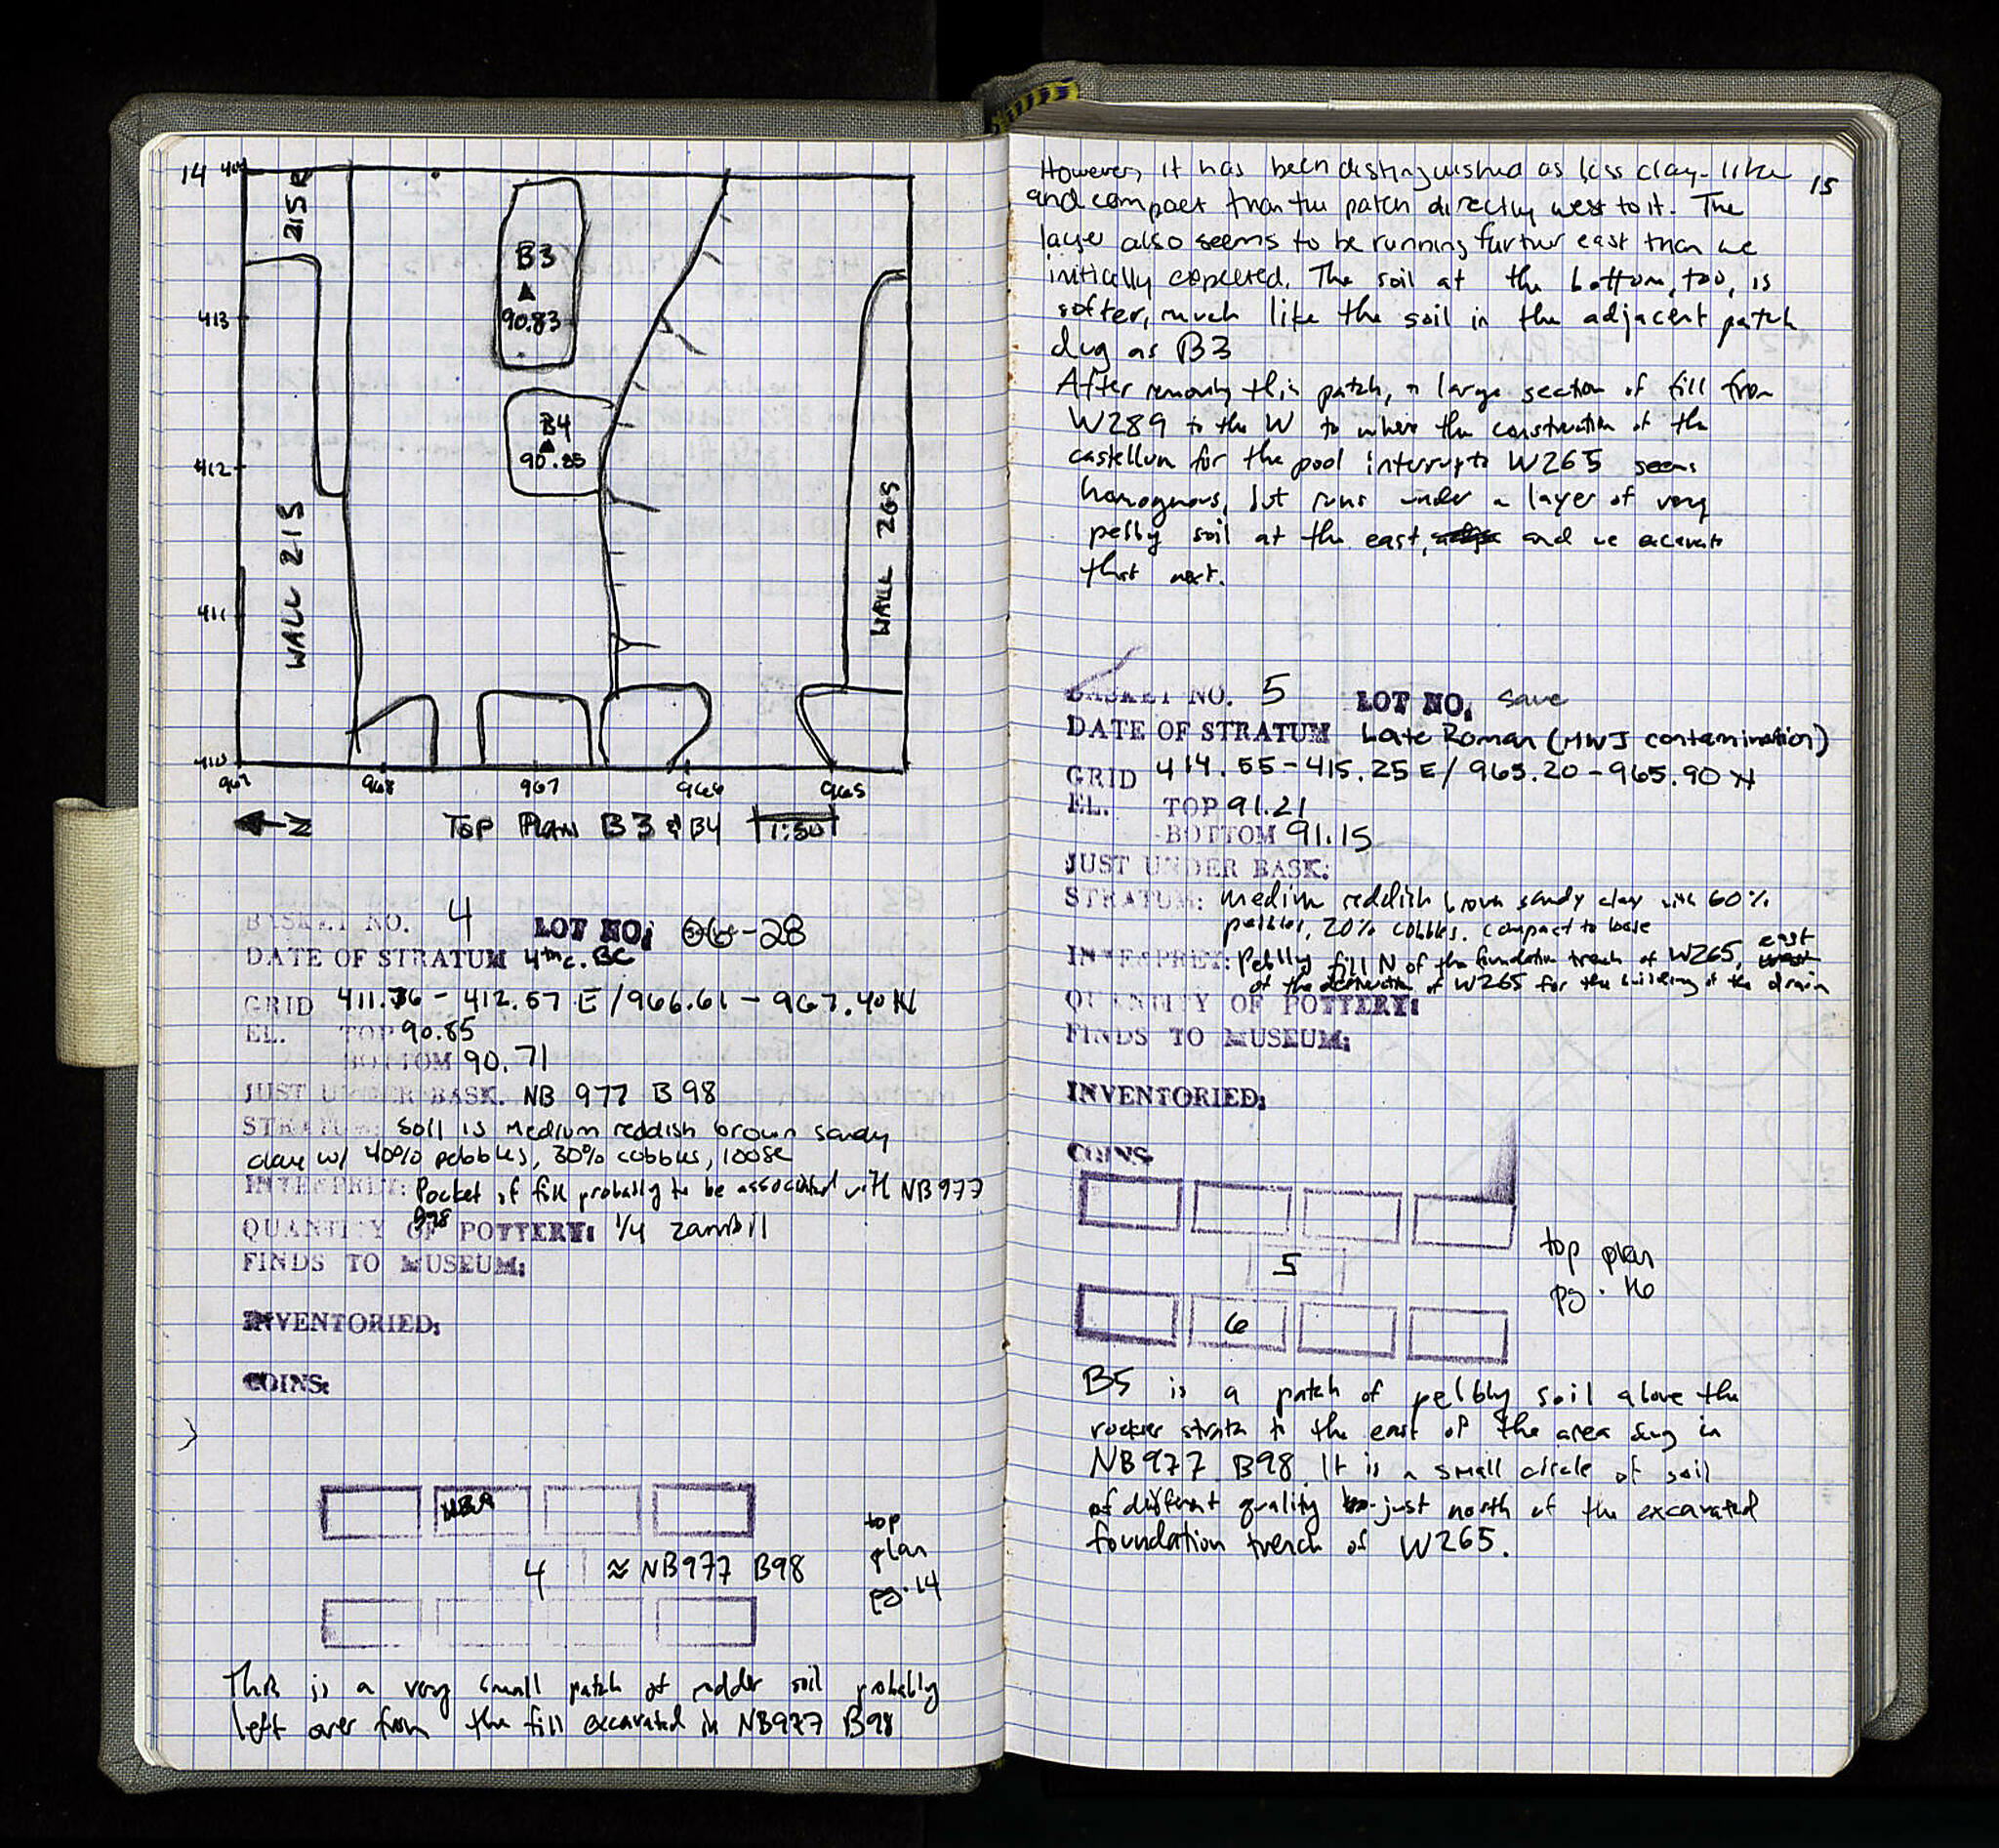 14
215A
B3
90.83
413
B4
90.85
412
WALL 215
WALL 265
411
410
967 968 967 966 965
N
TOP PLAN B3 & B4 1:50
BASKET NO. 4 LOT NO: 06-28
DATE OF STRATUM 4th c. BC
GRID 411.76 - 412.57 E / 966.61 - 967.40 N
EL. TOP 90.85
BOTTOM 90.71
JUST UNDER BASK. NB 977 B 98
STRATUM: Soil is medium reddish brown sandy
w/ 40% pebbles, 30% cobbles, loose
INTERPRET: Pocket of fill probably to be associated with NB 977
B98
QUANTITY OF POTTERY: 1/4 zambil
FINDS TO MUSEUM:
INVENTORIED:
COINS:
4 ≈ NB977 B98
top
plan
pg. 14
This is a very small patch of redder soil probably
left over from the fill excavated in NB977 B98
15
However, it has been distinguished as less clay-like
and compact than the patch directly west to it. The
layer also seems to be running further east than we
initially expected. The soil at the bottom, too, is
softer, much like the soil in the adjacent patch
dug as B3
After removing this patch, a large section of fill from
W289 to the W to where the construction of the
castellum for the pool interrupts W265 seems
homogenous, but runs under a layer of very
pebbly soil at the east, and we excavate
that next.
BASKET NO. 5 LOT NO. Save
DATE OF STRATUM Late Roman (MWJ contamination)
GRID 414.55-415.25 E / 965.20-965.90 N
EL. TOP 91.21
BOTTOM 91.15
JUST UNDER BASK:
STRATUM: medium reddish brown sandy clay with 60%
pebbles, 20% cobbles. compact to loose
INTERPRET: Pebbly fill N of the foundation trench of W265, east
of the destruction of W265 for the building of the drain
QUANTITY OF POTTERY:
FINDS TO MUSEUM:
INVENTORIED:
COINS
5
6
top plan
pg. 16
B5 is a patch of pebbly soil above the
rockier strata to the east of the area dug in
NB977 B98. It is a small circle of soil
of different quality just north of the excavated
foundation trench of W265.